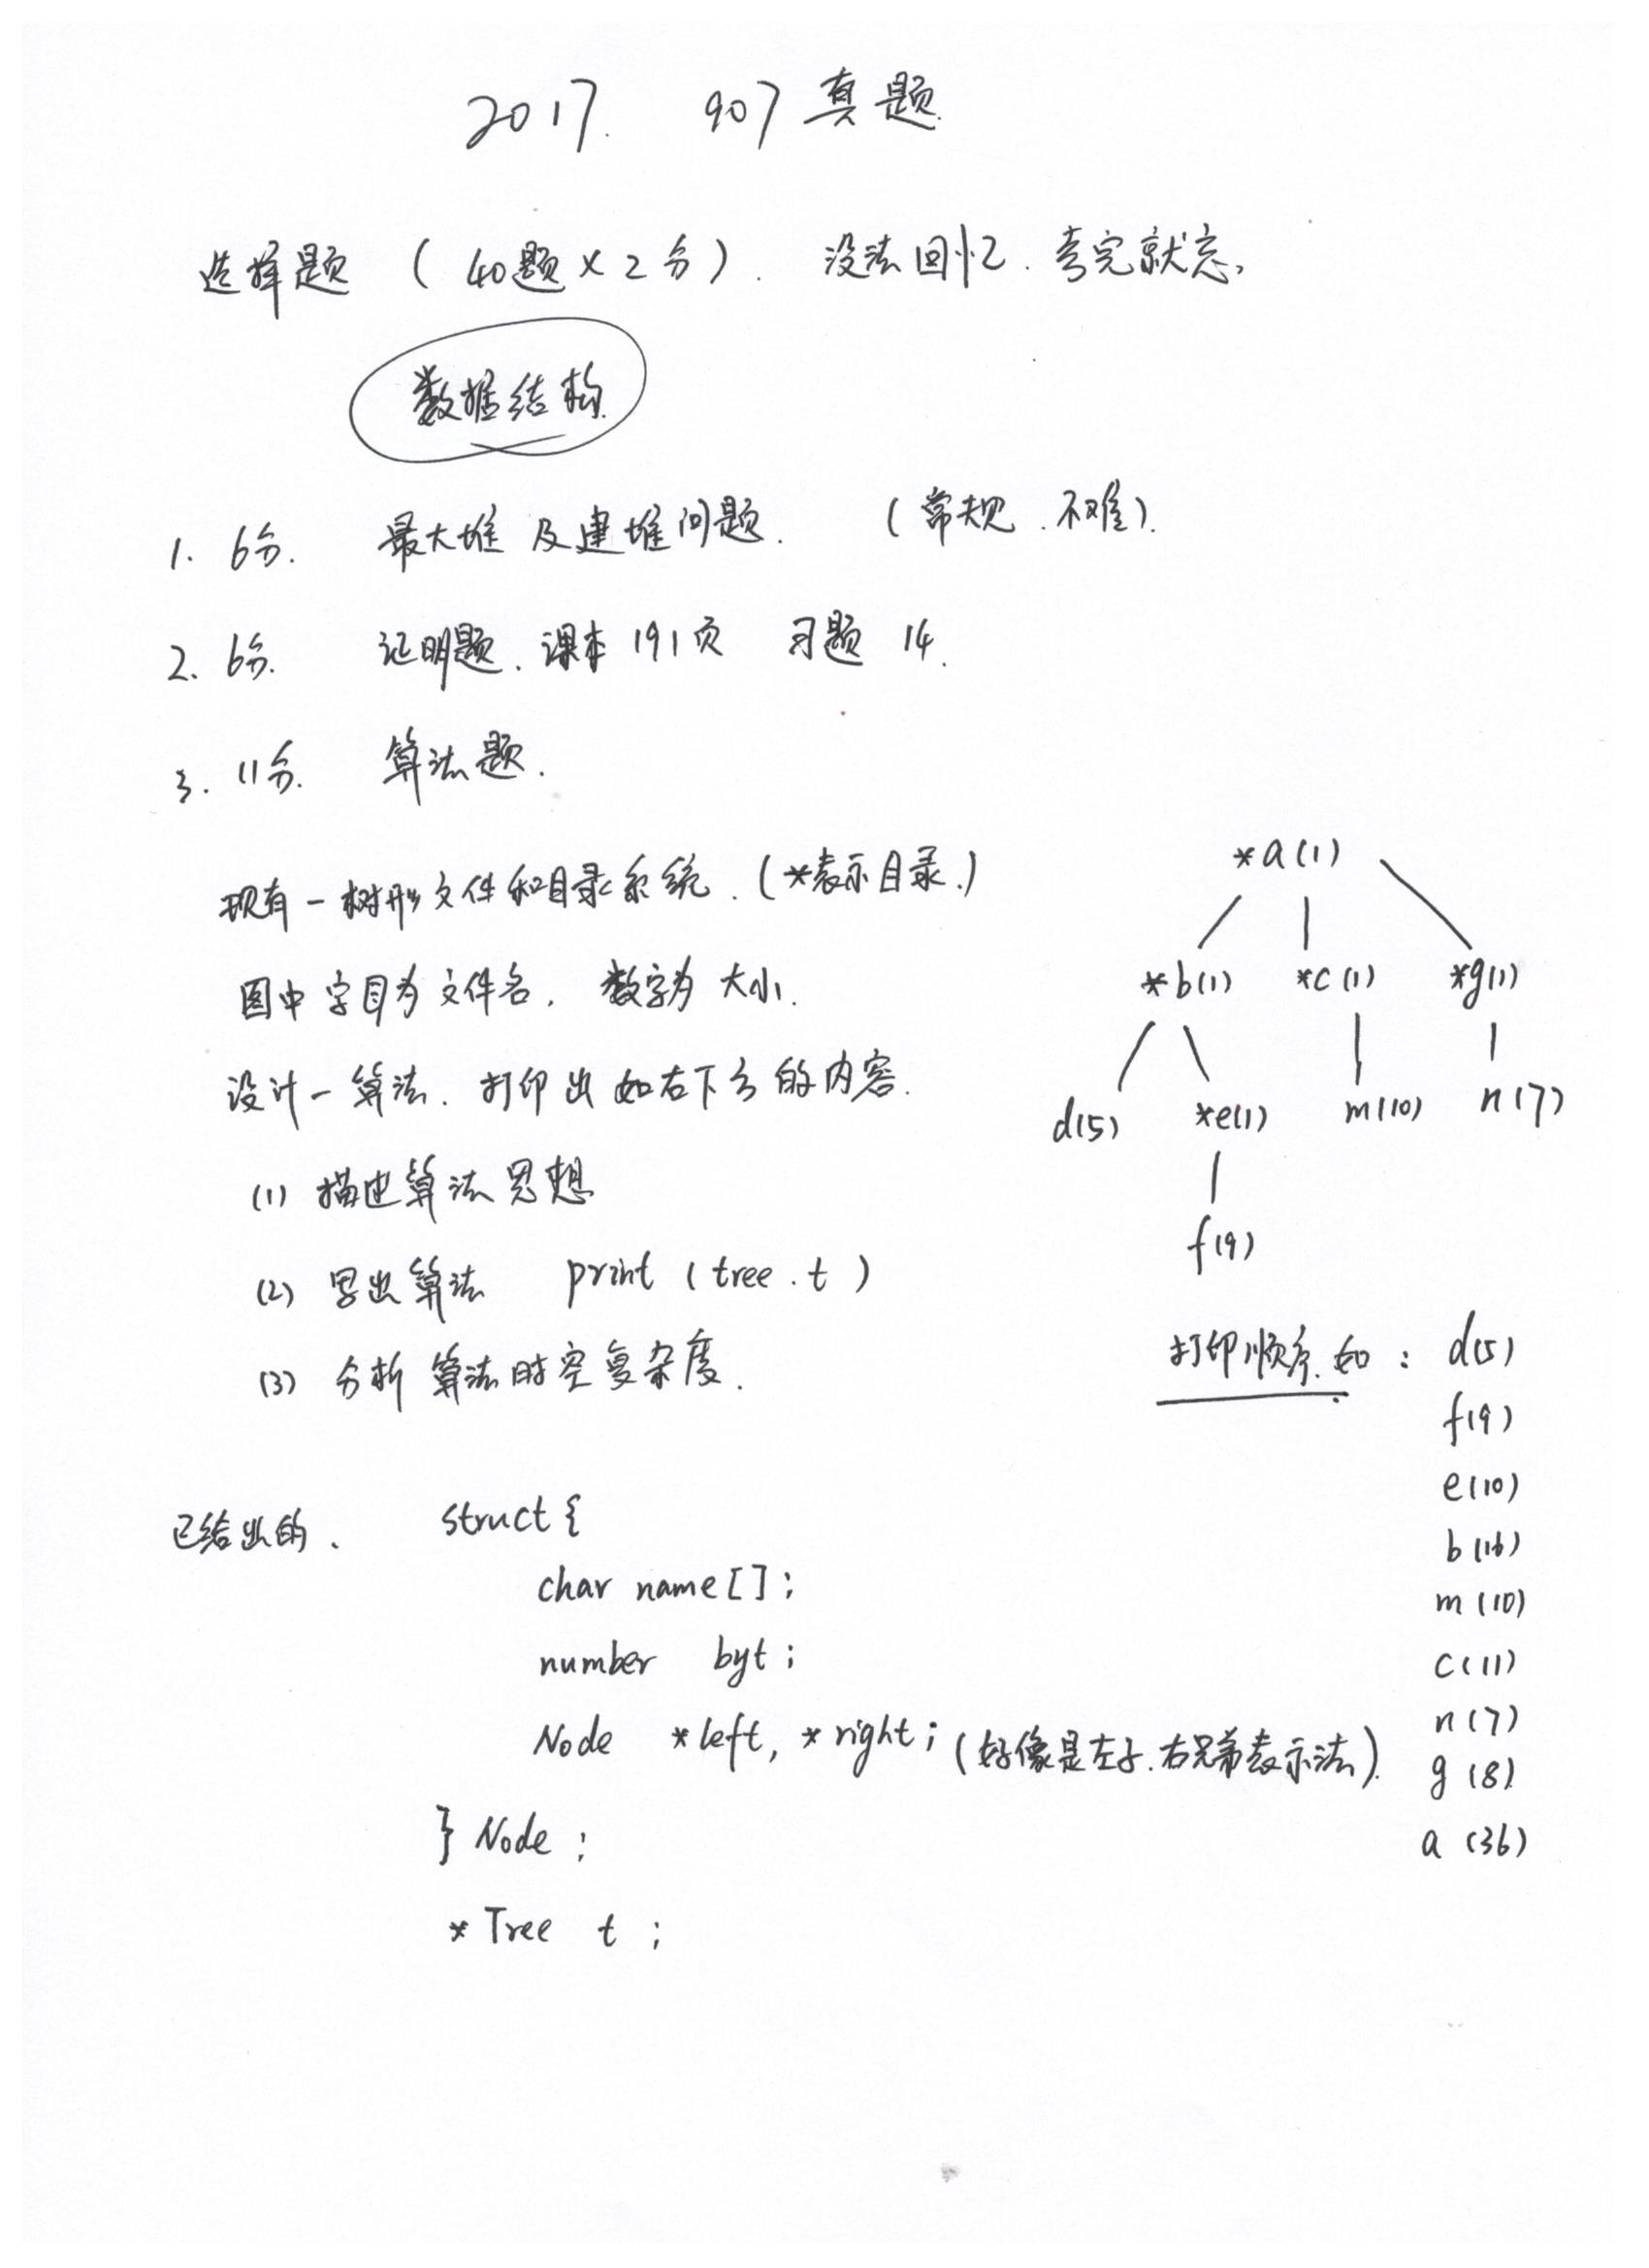 2017. 907真题.
选择题 (40题×2分). 没法回忆. 考完就忘,
数据结构
1. 6分. 最大堆及建堆问题. (常规.不难).
2. 6分. 证明题. 课本191页 习题14.
3. 11分. 算法题.
现有一树形文件和目录系统. (*表示目录.)
图中字目为文件名, 数字为大小.
设计一算法. 打印出如右下方的内容.
(1) 描述算法思想
(2) 写出算法 print (tree. t)
(3) 分析算法时空复杂度.
*a(1)
*b(1) *c(1) *g(1)
d(5) *e(1) m(10) n(7)
f(9)
打印顺序.如: d(5)
f(9)
e(10)
b(16)
m(10)
c(11)
n(7)
g(8)
a(36)
已给出的、 struct {
char name[];
number byt;
Node *left, *right; (好像是左子.右兄弟表示法).
} Node;
*Tree t;